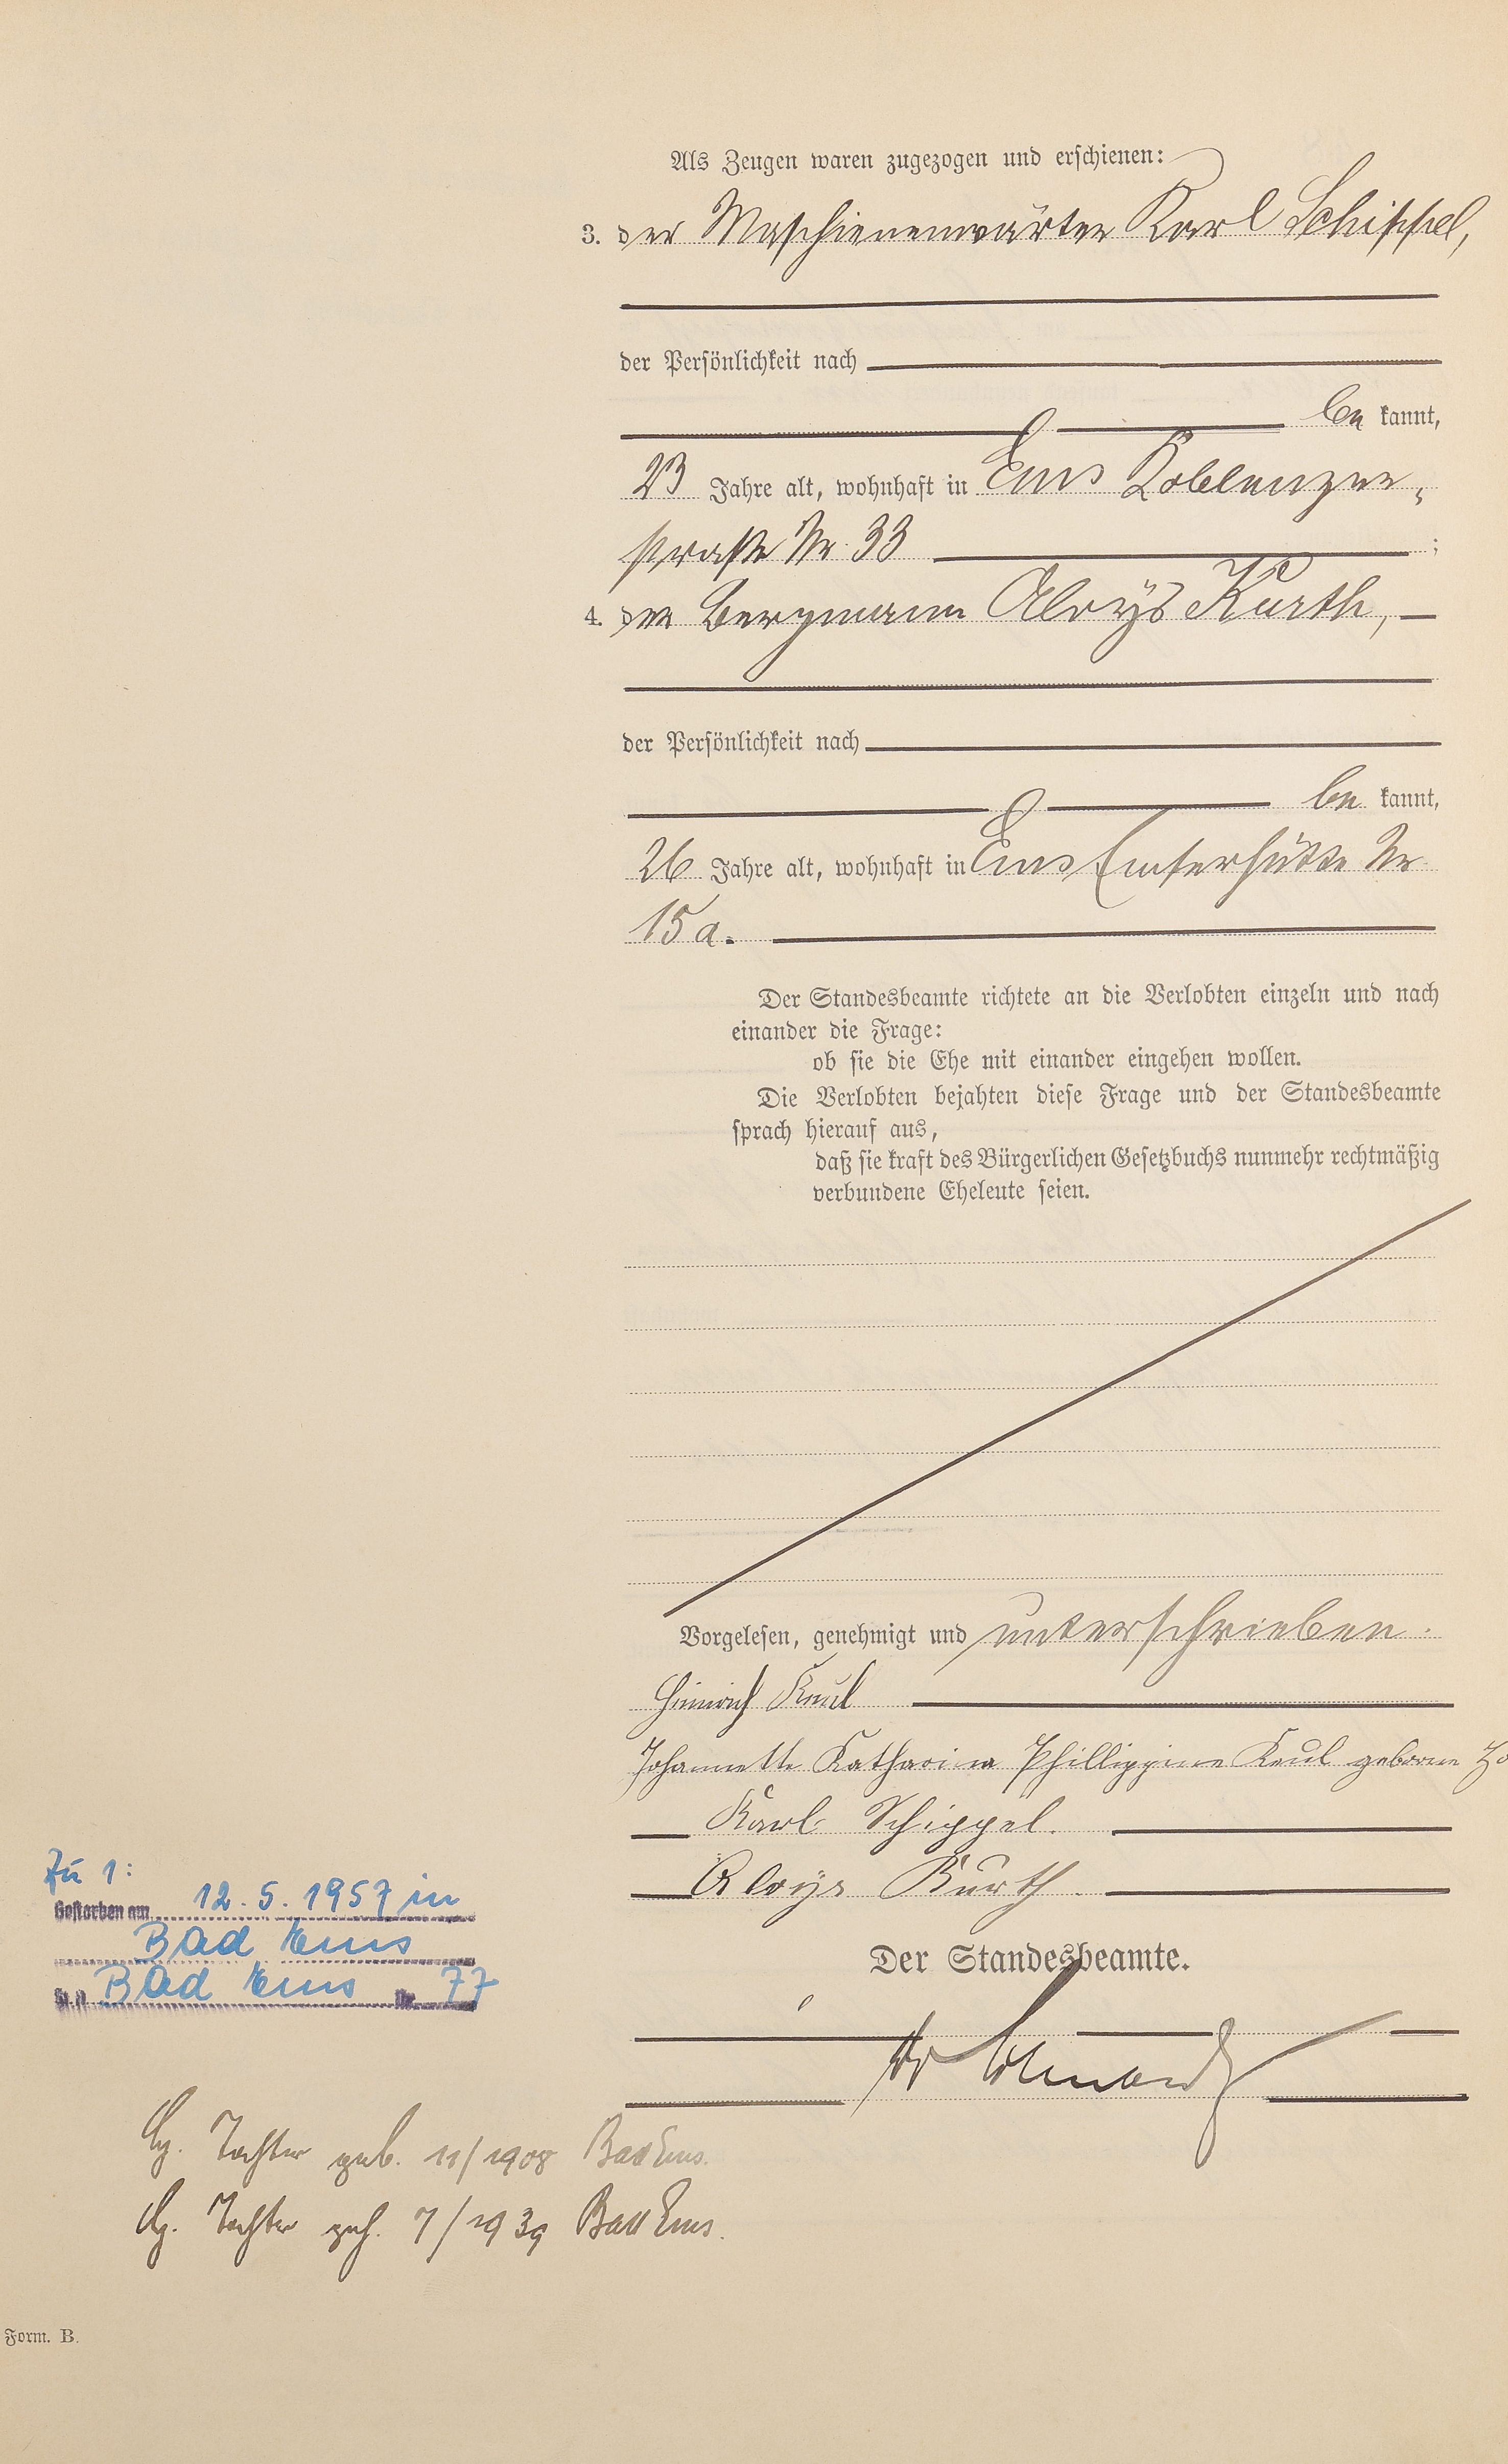 Als Zeugen waren zugezogen und erschienen:
3. der Maschienenwärter Karl Schippel,
der Persönlichkeit nach
be kannt,
23 Jahre alt, wohnhaft in Ems Koblenzer-
straße Nr. 33 ;
4. der Bergmann Aloys Kurth,
der Persönlichkeit nach
be kannt,
26 Jahre alt, wohnhaft in Ems Emserhütte Nr
15a.
Der Standesbeamte richtete an die Verlobten einzeln und nach
einander die Frage:
ob sie die Ehe mit einander eingehen wollen.
Die Verlobten bejahten diese Frage und der Standesbeamte
sprach hierauf aus,
daß sie kraft des Bürgerlichen Gesetzbuchs nunmehr rechtmäßig
verbundene Eheleute seien.
Vorgelesen, genehmigt und unterschrieben.
Heinrich Keul
Johannette Katharina Phillippine Keul geborne
Karl Schippel.
Aloys Kurth.
Der Standesbeamte.
Zu 1:
Gestorben am 12.5.1957 in
Bad Ems
St. A. Bad Ems Nr. 77
Tochter geb. 11/1908 Bad Ems.
Tochter geh. 7/1939 Bad Ems.
Form. B.